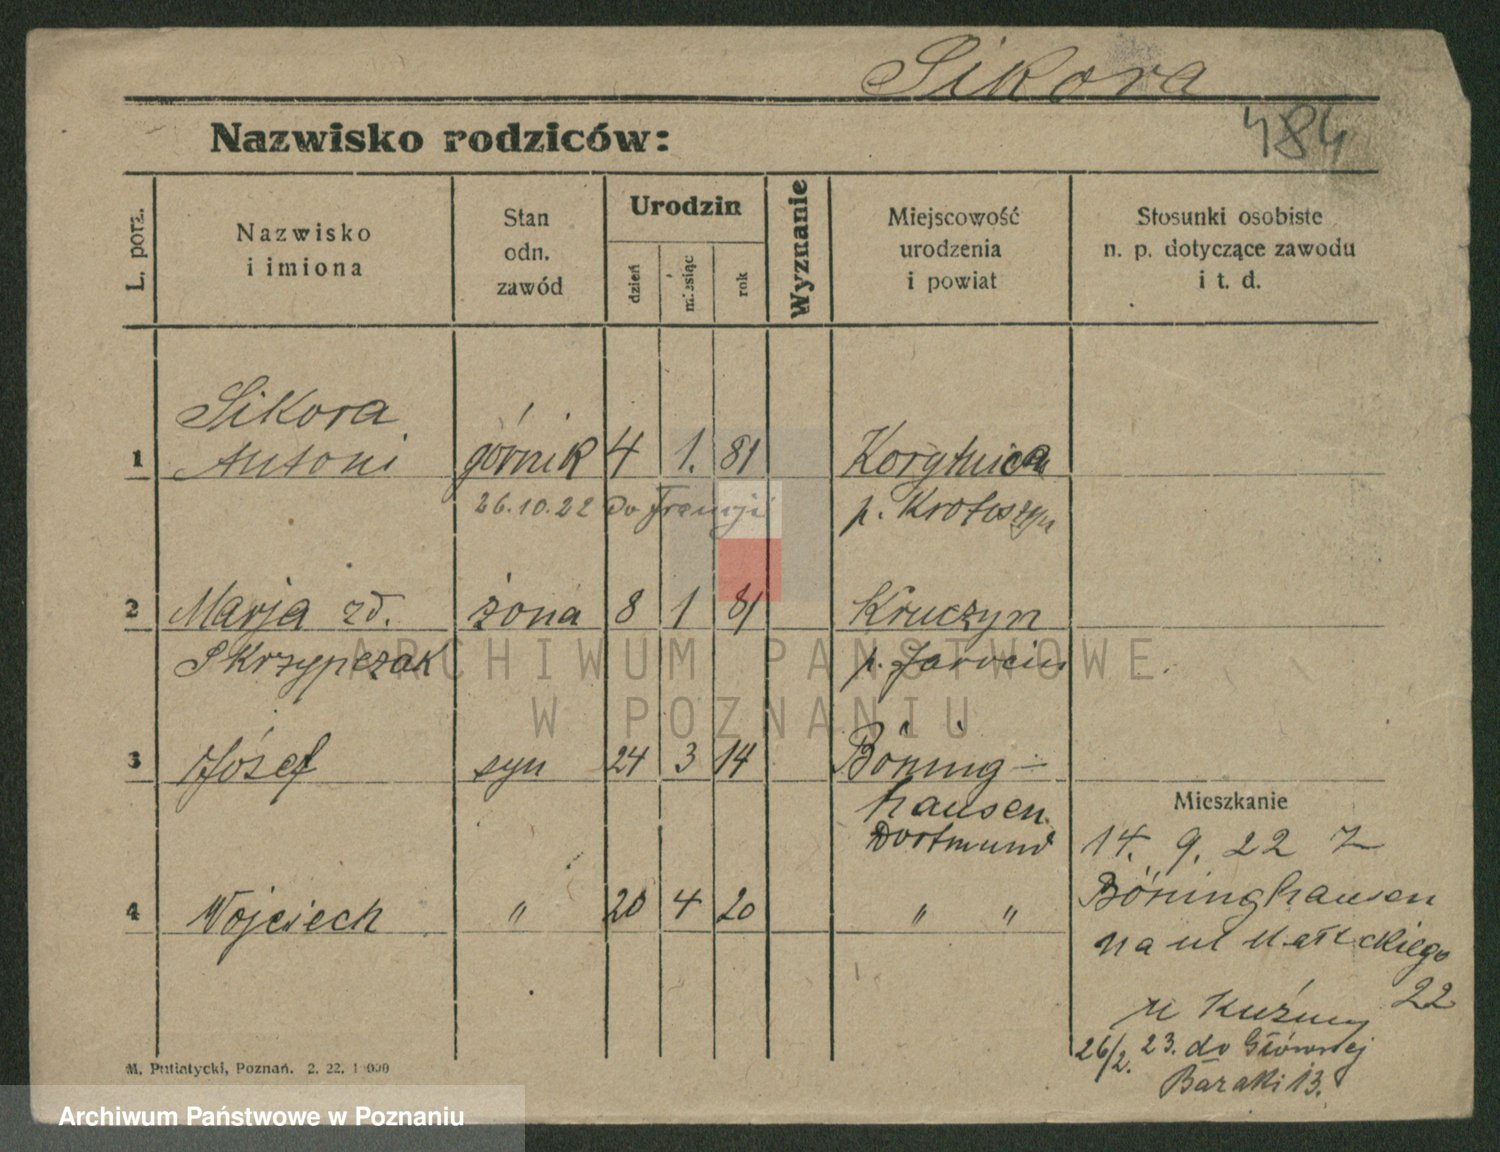 Sikora
Nazwisko rodziców:
484
L. porz.
Nazwisko
i imiona
Stan
odn.
zawód
Urodzin
dzień
miesiąc
rok
Wyznanie
Miejscowość
urodzenia
i powiat
Stosunki osobiste
n. p. dotyczące zawodu
i t. d.
Sikora
1 Antoni górnik 4 1. 81
26.10.22 do Francji
p. Krotoszyn
2 Marja zd. żona 8 1 81 Kruczyn
Skrzypczak p. Jarocin
3 Józef syn 24 3 14 Böning-
hausen
Dortmund
4 Wojciech " 20 4 20 " "
Mieszkanie
14. 9. 22 z
Böninghausen
na ul Małeckiego
22
u Kuźmy
26/2. 23. do Głównej
Baraki 13.
M. Putiatycki, Poznań. 2. 22. 1000
ARCHIWUM PAŃSTWOWE
W POZNANIU
Archiwum Państwowe w Poznaniu